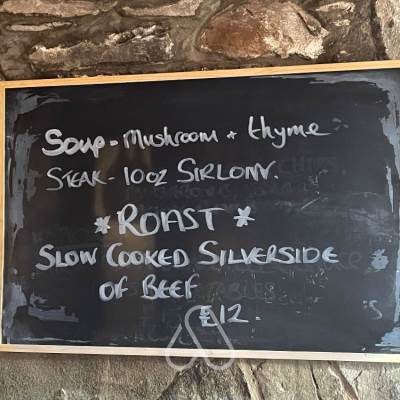 Soup - Mushroom + thyme
STEAK - 10oz SIRLOIN.
* ROAST *
SLOW COOKED SILVERSIDE
OF BEEF
£12.